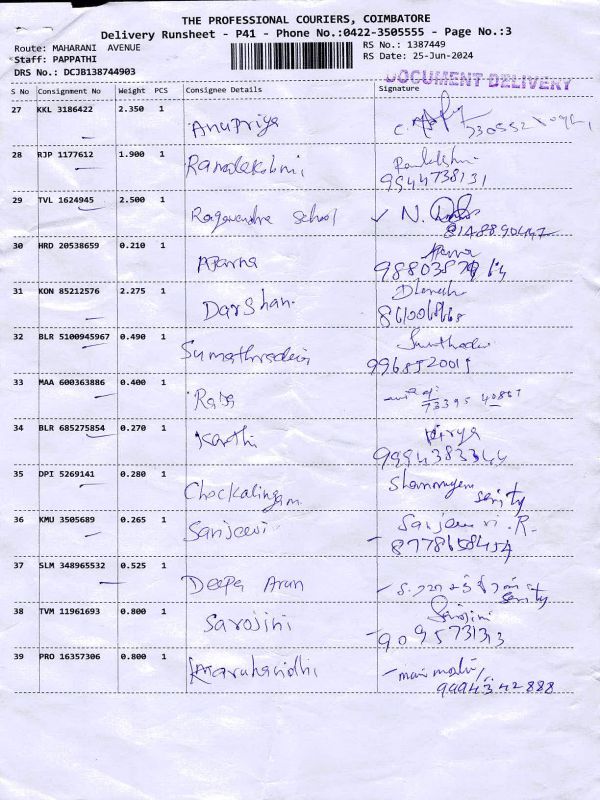 THE PROFESSIONAL COURIERS, COIMBATORE
Delivery Runsheet - P41 - Phone No.:0422-3505555 - Page No.:3
Route: MAHARANI AVENUE RS No.: 1387449
Staff: PAPPATHI RS Date: 25-Jun-2024
DRS No.: DCJB138744903
DOCUMENT DELIVERY
S No Consignment No Weight PCS Consignee Details Signature
27 KKL 3186422 2.350 1
Anupriya
28 RJP 1177612 1.900 1
Ramalekshmi,
9944738131
29 TVL 1624945 2.500 1
Ragavendra School N.
8148890447
30 HRD 20538659 0.210 1
Aparna Aparna
31 KON 85212576 2.275 1
Darshan Dhanesh
32 BLR 5100945967 0.490 1
Sumathradevi
33 MAA 600363886 0.400 1
Raja
73395 40867
34 BLR 685275854 0.270 1
Karthi
9994383344
35 DPI 5269141 0.280 1
Chockalingam Shanmugam
36 KMU 3505689 0.265 1
Sanjeevi Sanjeevi.R.
8778658454
37 SLM 348965532 0.525 1
Deepa Arun
38 TVM 11961693 0.800 1
Sarojini Sarojini
9095731313
39 PRO 16357306 0.800 1
99943 42888